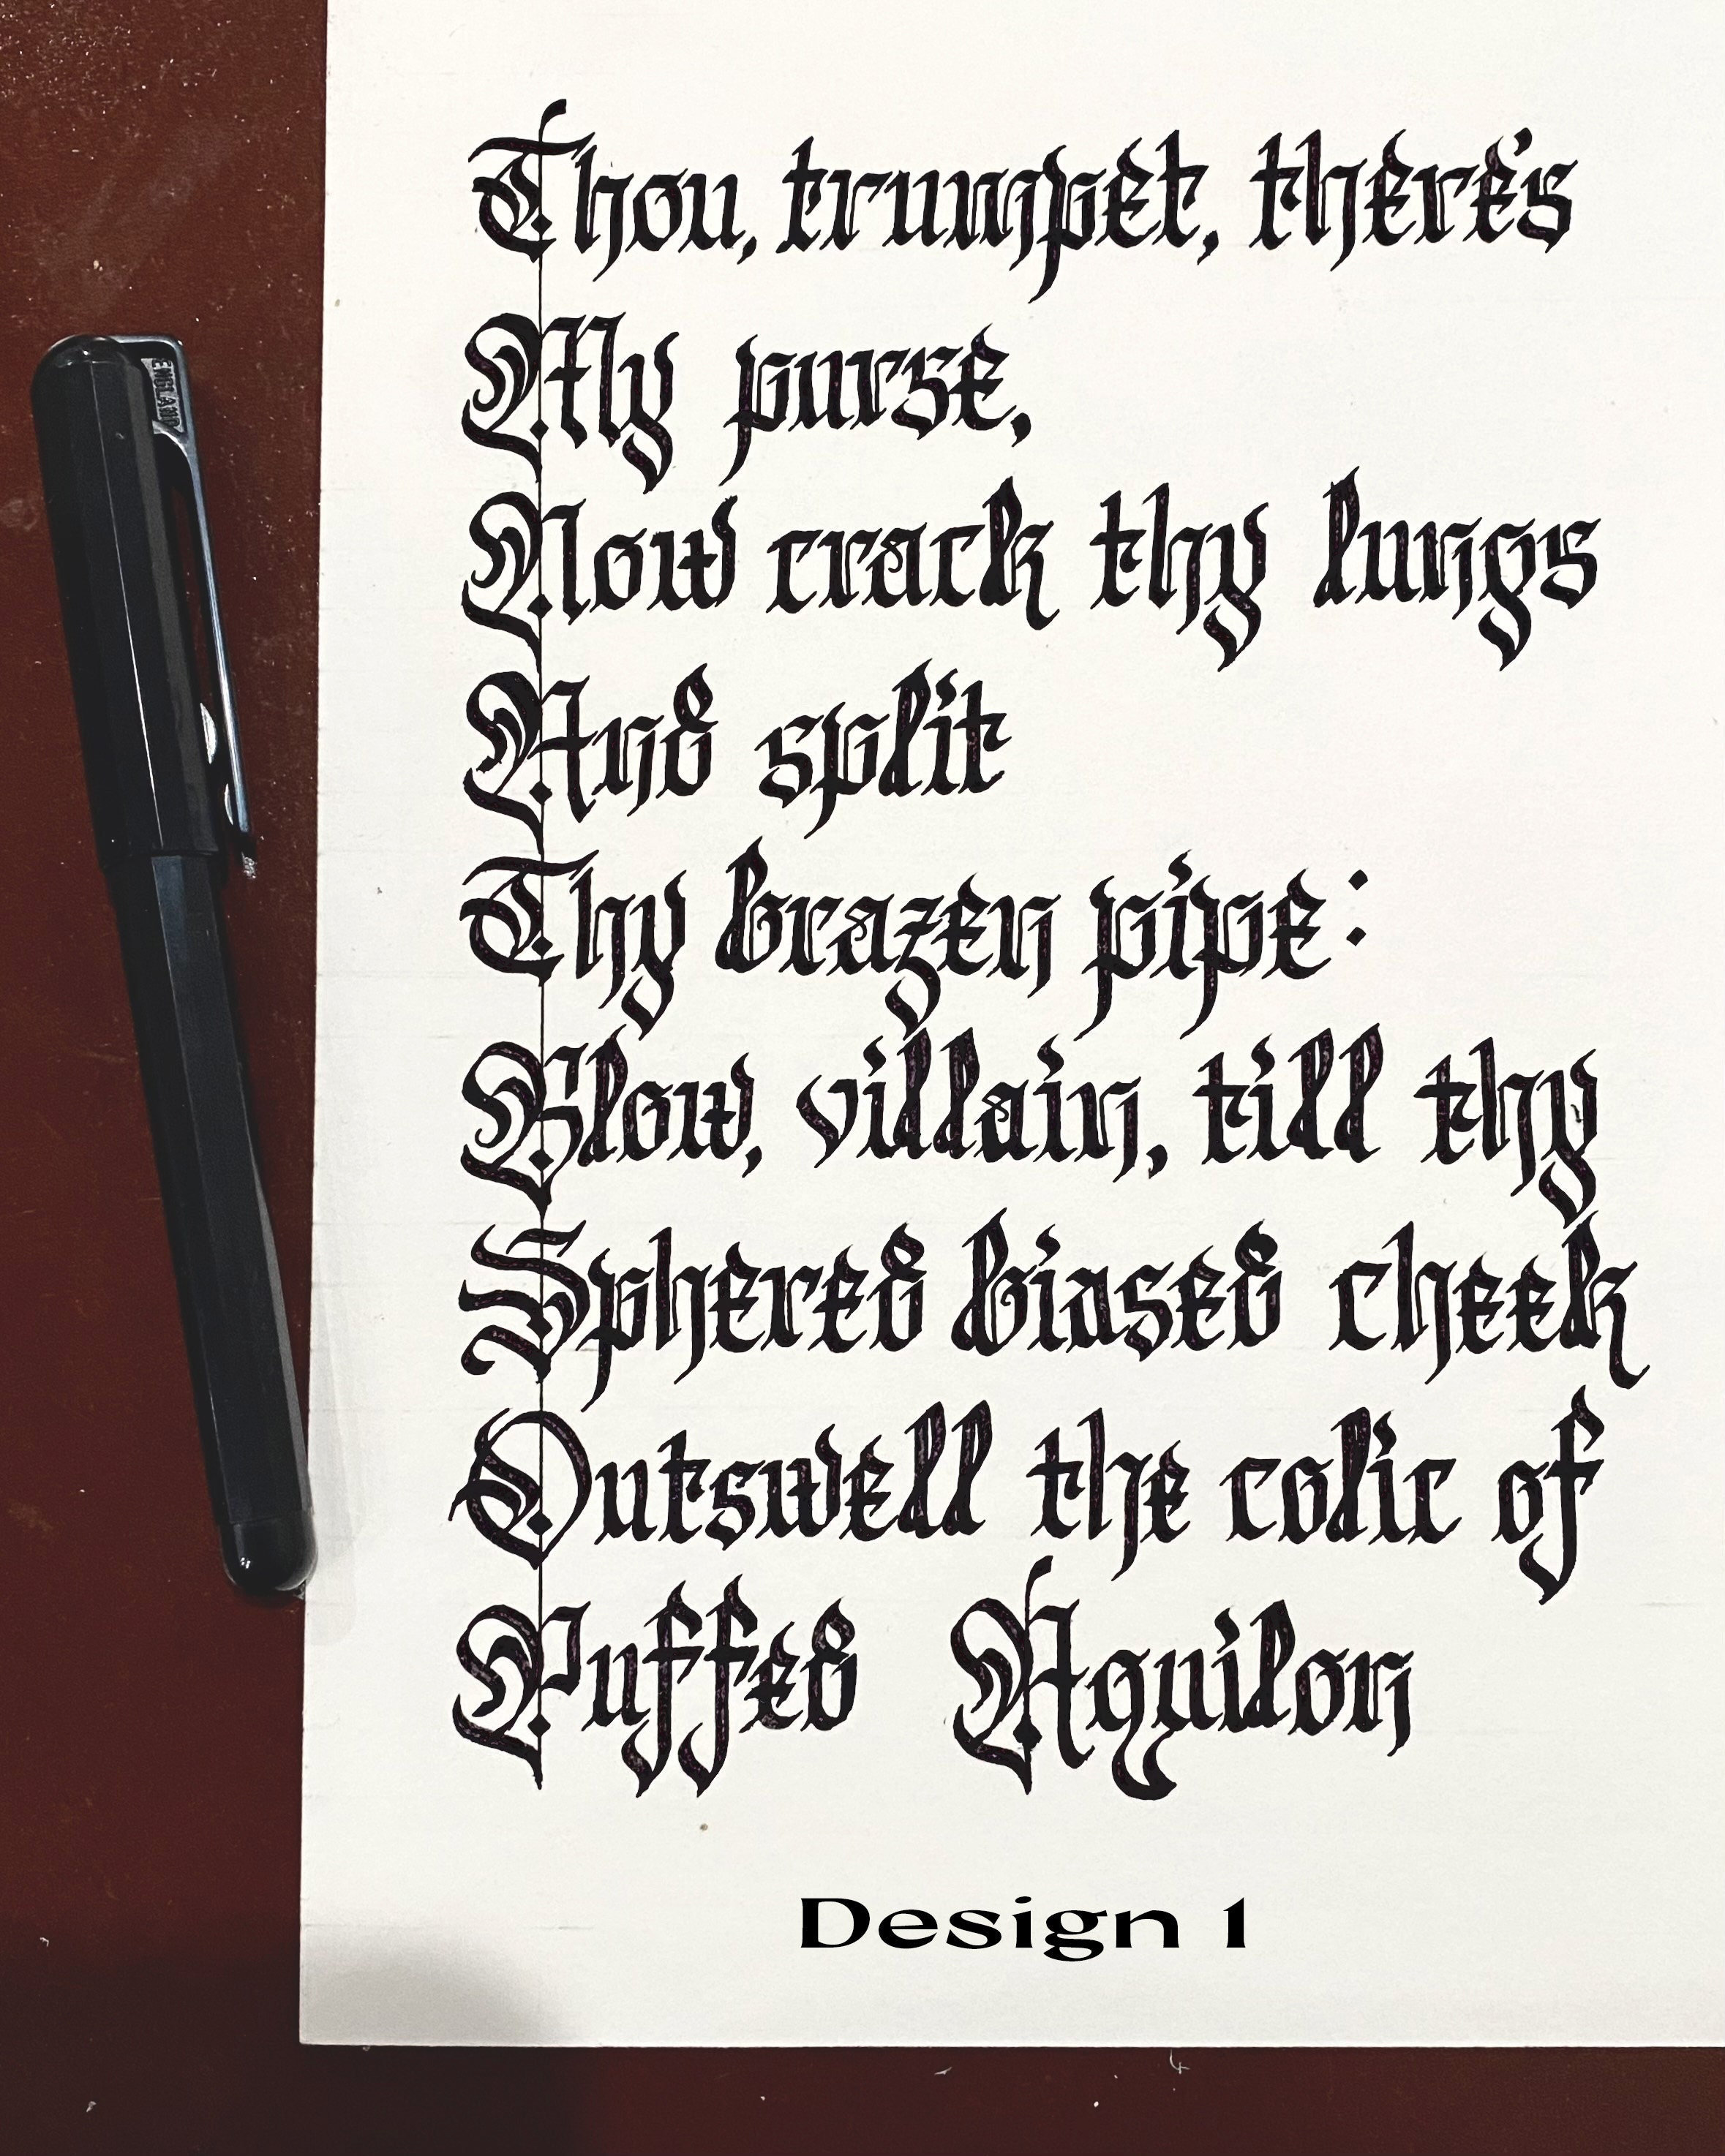 Thou, trumpet, there's
My purse,
Now crack thy lungs
And split
Thy brazen pipe:
Blow, villain, till thy
Sphered biased cheek
Outswell the colic of
Puffed Aquilon
Design 1
ENGLAND